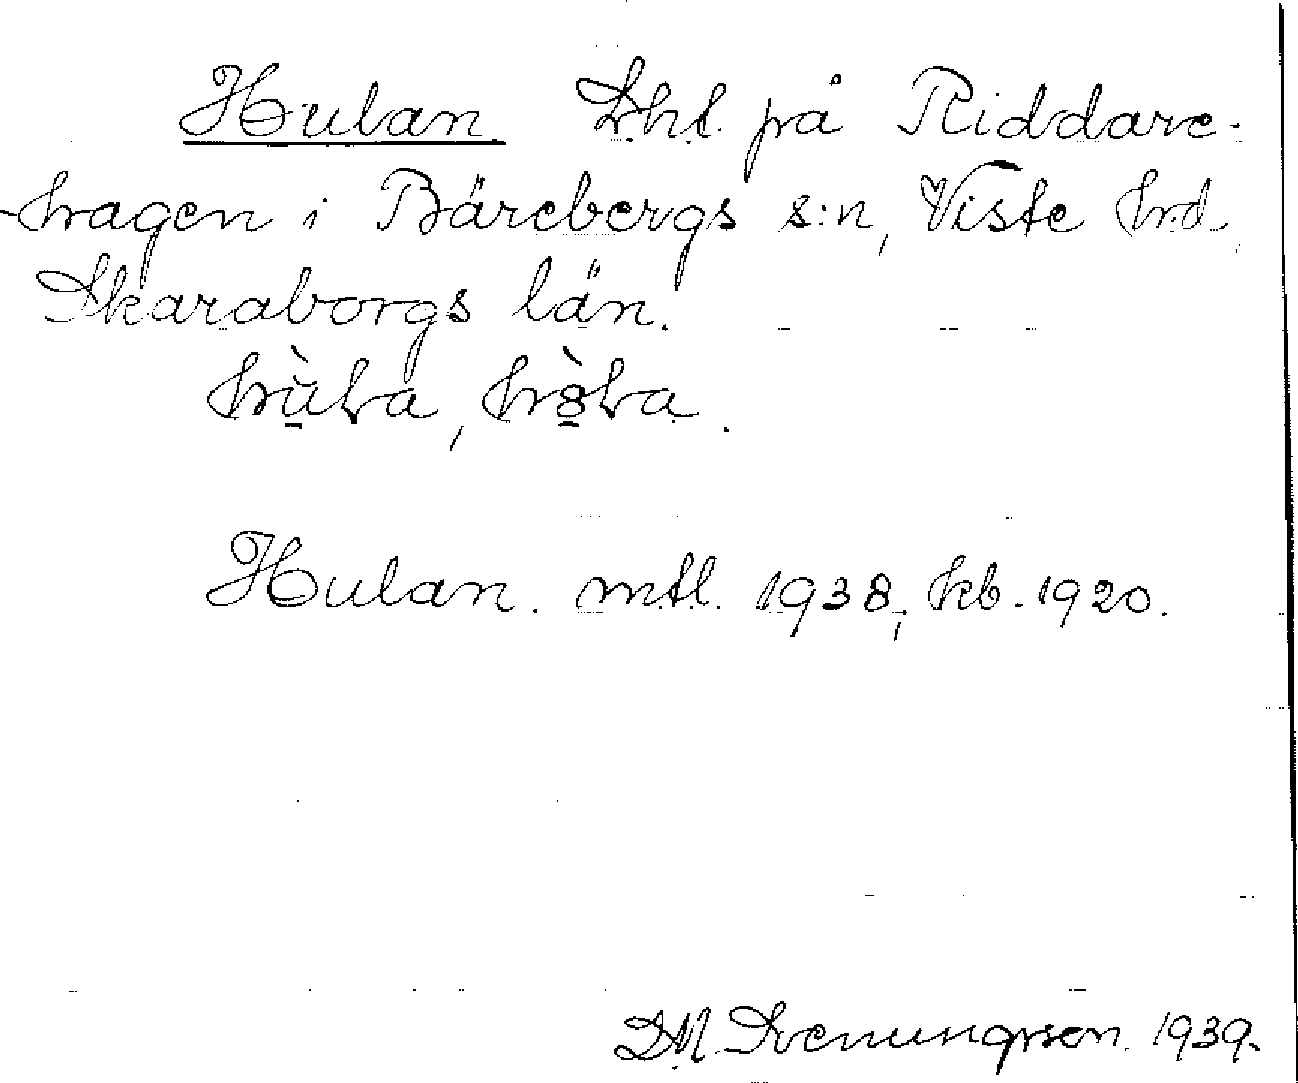 Hulan Lht. på Riddare-
-hagen i Bärebergs s:n, Viste hrd,
Skaraborgs län.
Hulan. mtl. 1938, kb. 1920.
Svenungsson. 1939.